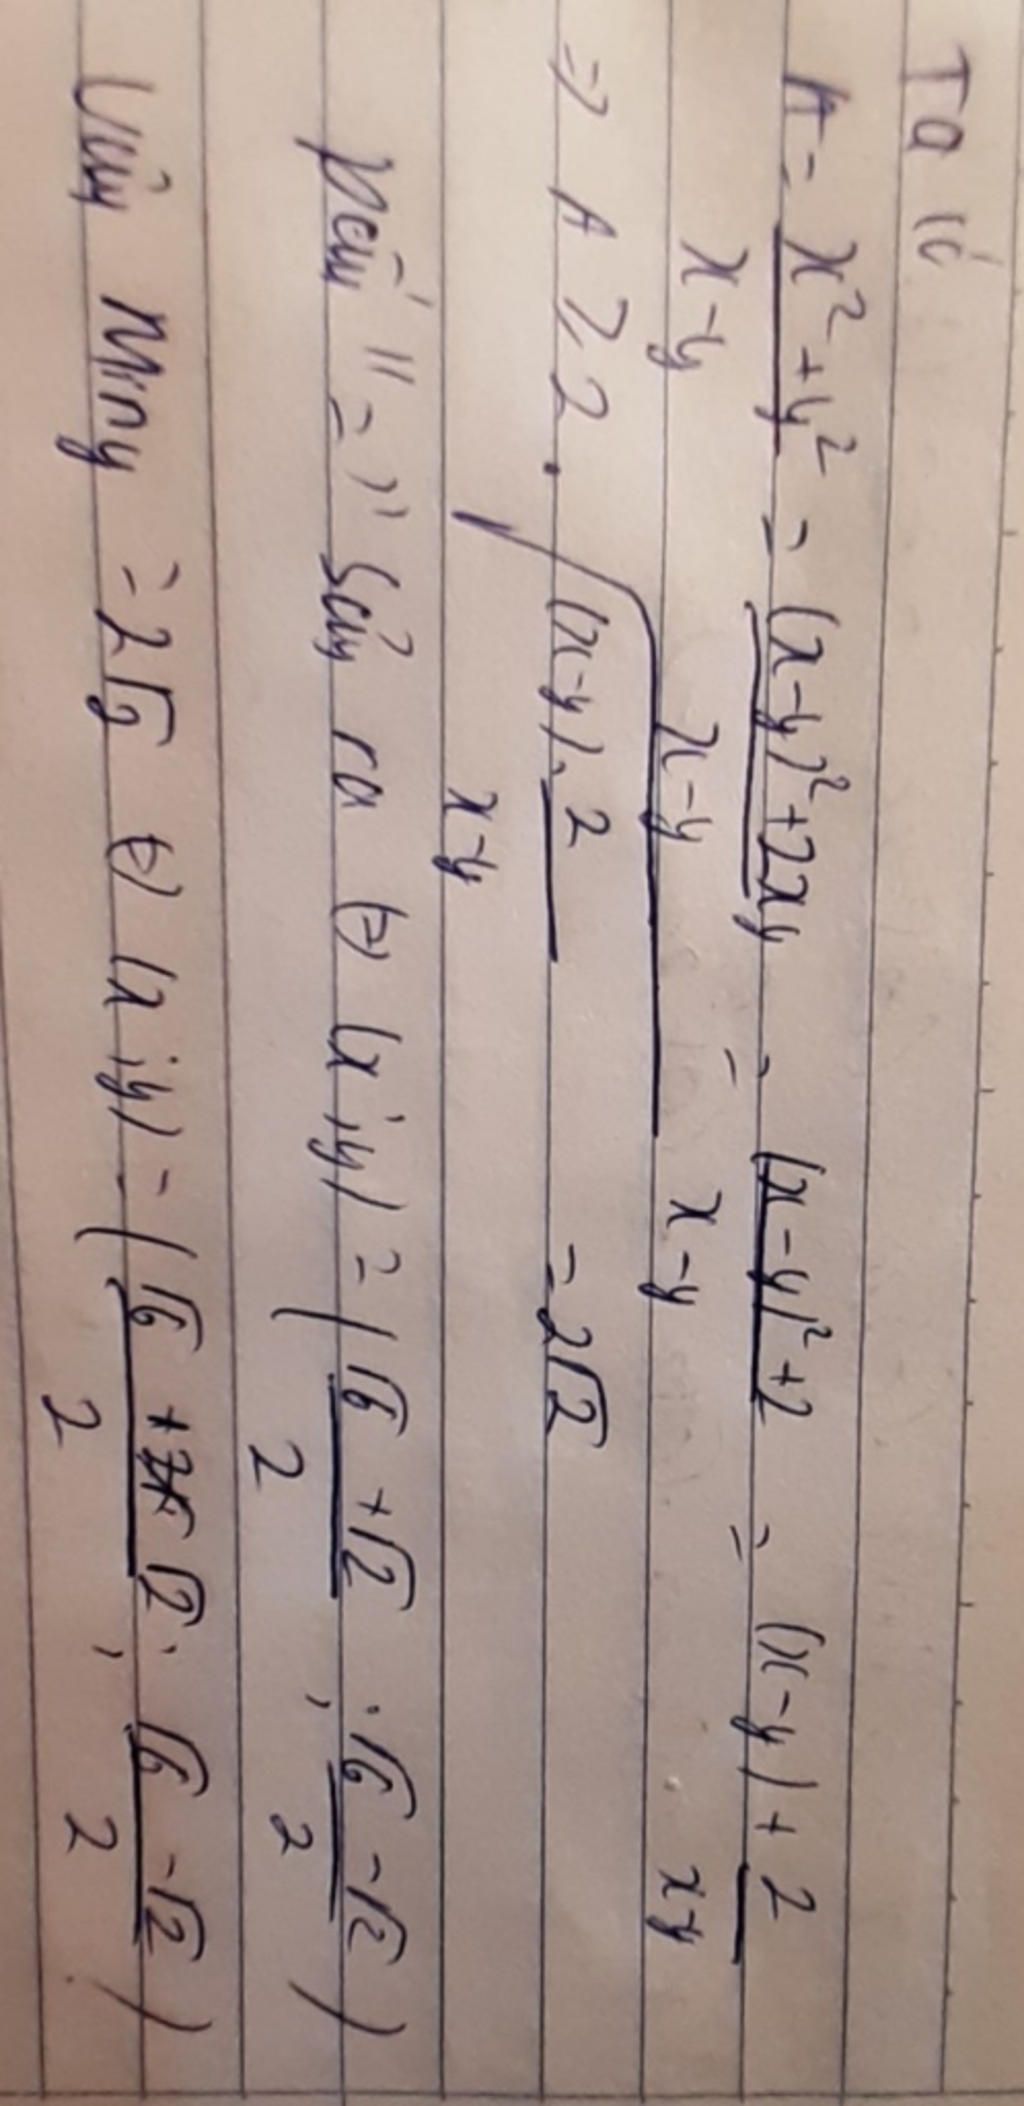 Ta có
A = x²+y² / x-y = (x-y)²+2xy / x-y = (x-y)²+2 / x-y = (x-y) + 2 / x-y
=> A ≥ 2. √((x-y). 2 / x-y) = 2√2
Dấu "=" xảy ra <=> (x;y) = (√6 +√2 / 2 ; √6 -√2 / 2)
Vậy Min = 2√2 <=> (x;y) = (√6 + √2 / 2 ; √6 -√2 / 2)